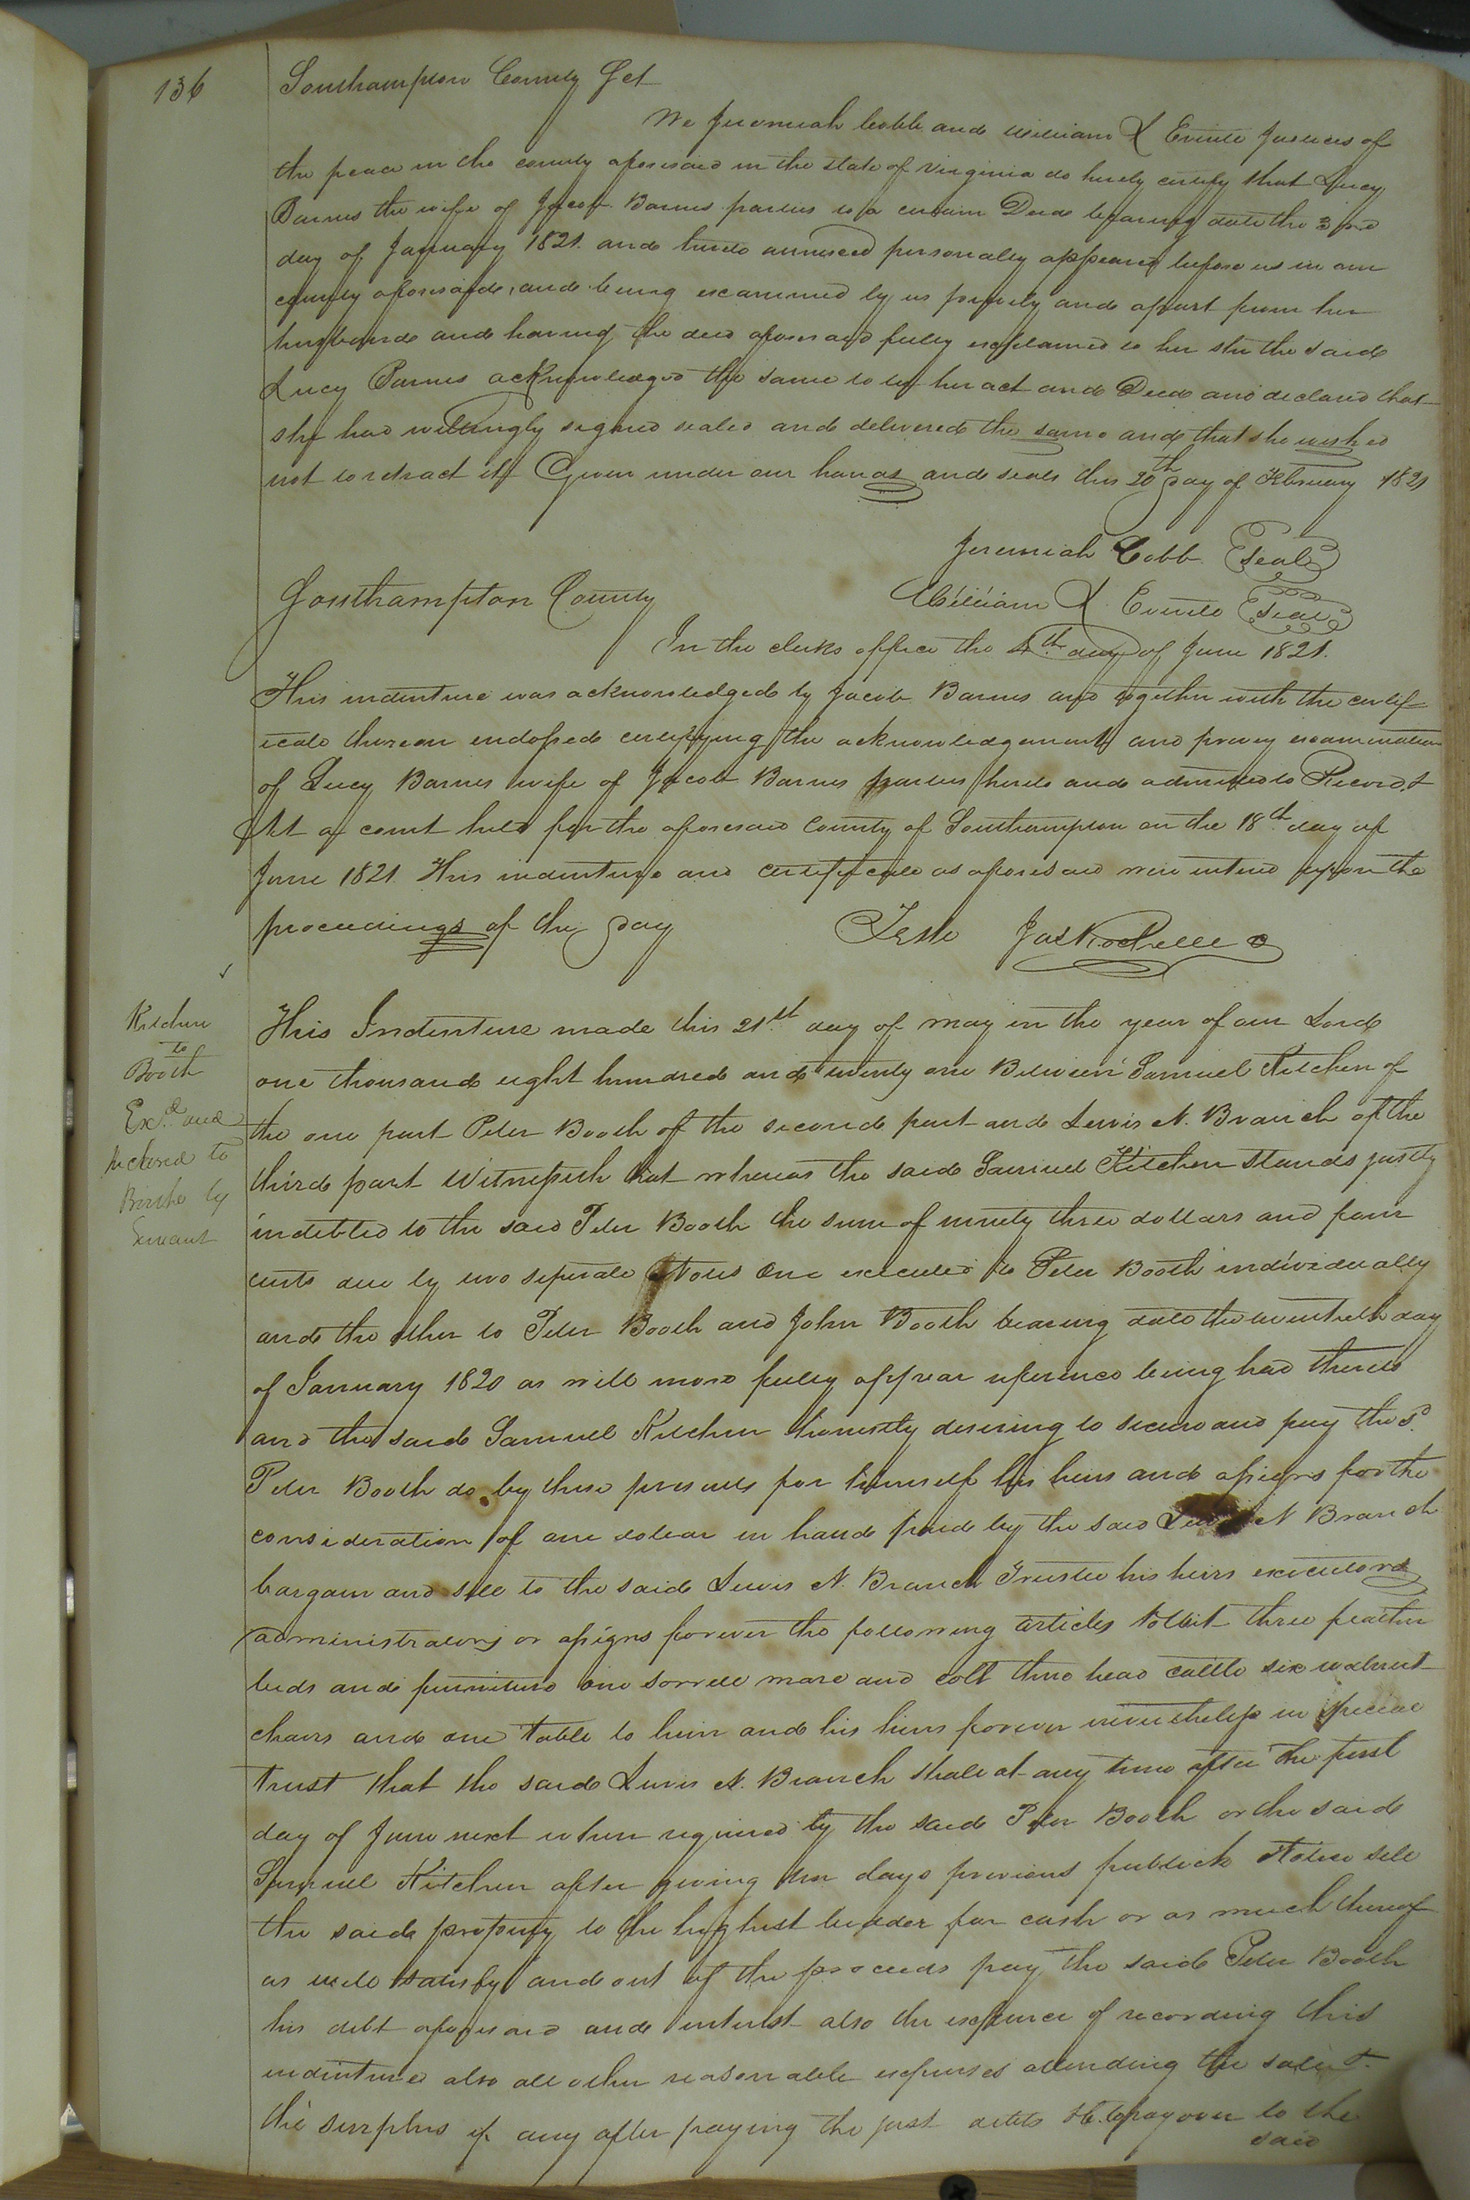 136
Southampton County Sct
We Jeremiah Cobb and William L Everitt Justices of
the peace in the county aforesaid in the state of Virginia do hereby certify that Lucy
Barnes the wife of Jacob Barnes parties to a certain Deed bearing date the
day of January 1821. and hereto annexed personally appeared before us in our
county aforesaid, and being examined by us privily and apart from her
husband and having the deed aforesaid fully explained to her she the said
Lucy Barnes acknowledged the same to be her act and Deed and declared that
she had willingly signed sealed and delivered the same and that she wished
not to retract it Given under our hands and seals this 20th day of February 1821
Jeremiah Cobb Seal
William L Everitt Seal
Southampton County
In the clerks office the 4th day of June 1821.
This indenture was acknowledged by Jacob Barnes and together with the certif
icate thereon endorsed certifying the acknowledgement and privey examination
of Lucy Barnes wife of Jacob Barnes parties hereto and admitted to Record &
At a court held for the aforesaid County of Southampton on the 18th day of
June 1821. This indenture and certificate as aforesaid were entered upon the
proceedings of the day
Teste Jas Rochelle
Kitchen
to
Booth
Exd. and
delivered to
Booth by
Servant
This Indenture made this 21st. day of may in the year of our Lord
one thousand eight hundred and twenty one Between Samuel Kitchen of
the one part Peter Booth of the second part and Lewis N. Branch of the
third part Witnesseth that whereas the said Samuel Kitchen stands justly
indebted to the said Peter Booth the sum of ninety three dollars and four
cents due by two seperate Notes One executed to Peter Booth individually
and the other to Peter Booth and John Booth bearing date the day
of January 1820 as will more fully appear reference being had thereto
and the said Samuel Kitchen honestly desiring to secure and pay the sd.
Peter Booth do by these presents for himself his heirs and assigns for the
consideration of one dollar in hand paid by the said Lewis N Branch
bargain and sell to the said Lewis N. Branch Trustee his heirs executors
administrators or assigns forever the following articles towit three feather
beds and furniture one sorrell mare and colt three head cattle six walnut
chairs and one table to him and his heirs forever nevertheless in special
trust that the said Lewis N. Branch shall at any time after the first
day of June next when required by the said Peter Booth or the said
Samuel Kitchen after giving ten days previous publick Notice sell
the said property to the highest bidder for cash or as much thereof
as will satisfy and out of the proceeds pay the said Peter Booth
his debt aforesaid and interest also the expence of recording this
indenture also all other reasonable expenses attending the sale &
the surplus if any after paying the just debts to pay over to the
said